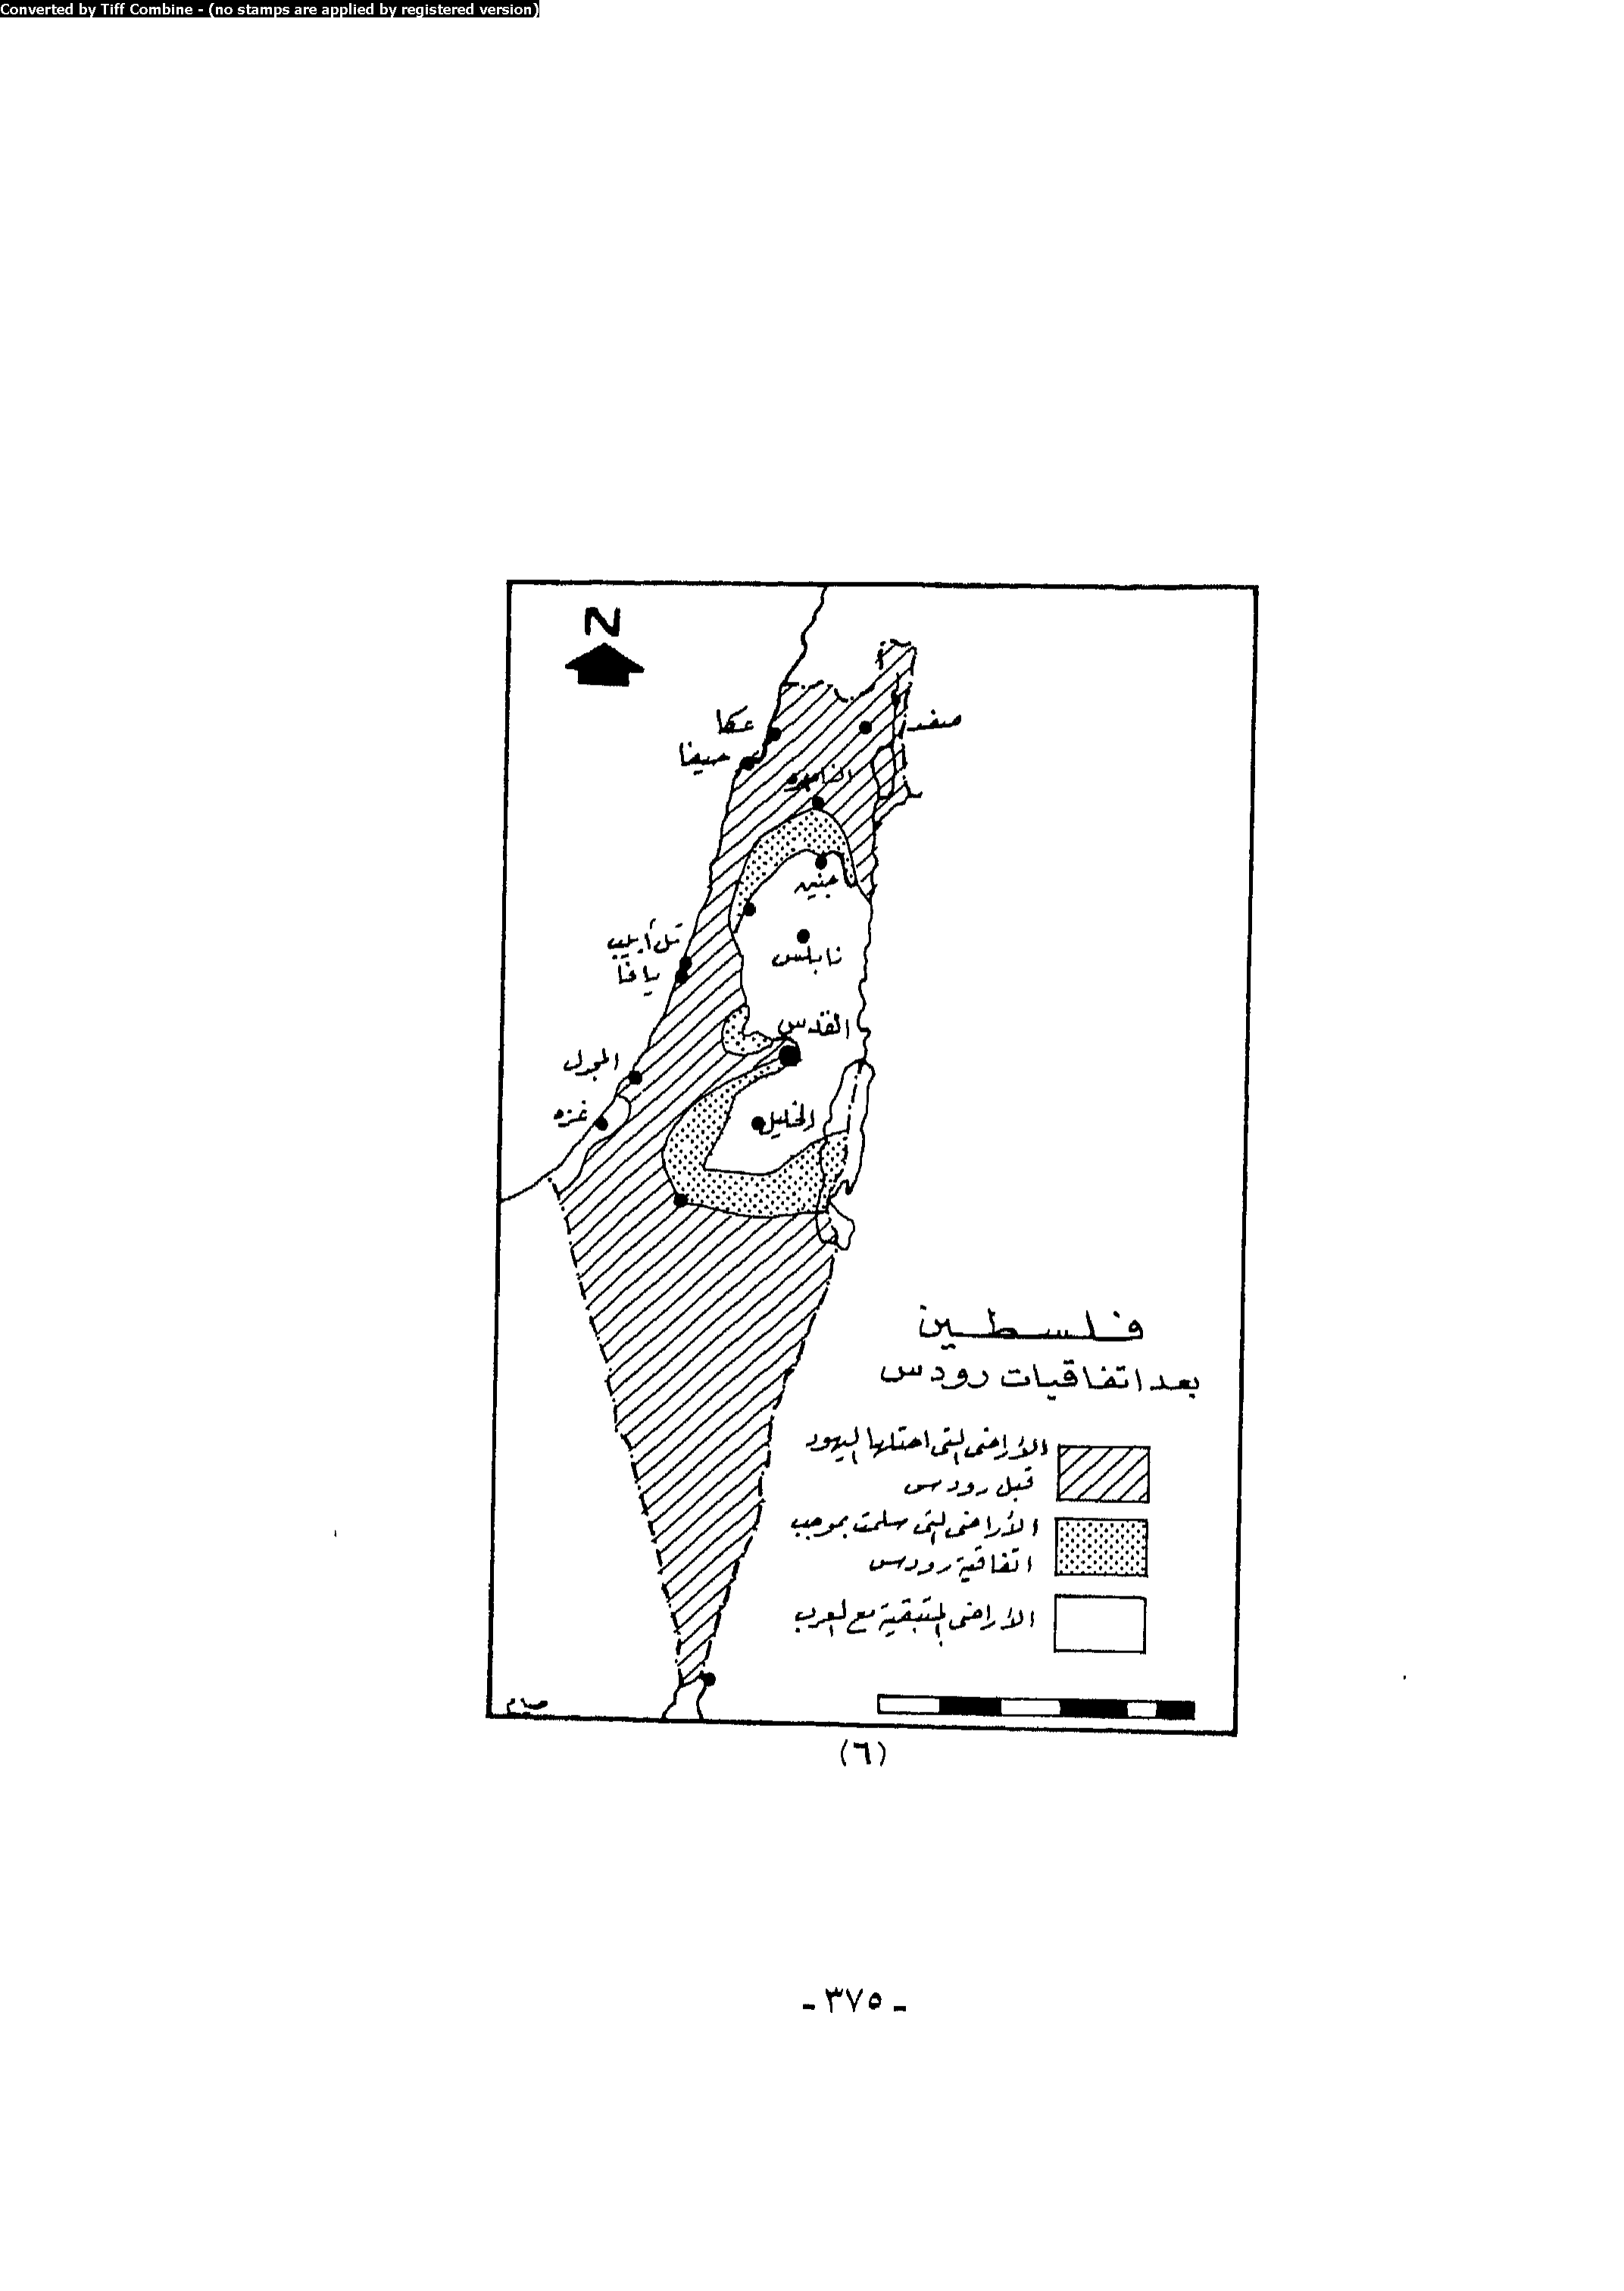 Converted by Tiff Combine - (no stamps are applied by registered version)
N
عكا
صفد
حيفا
الناصره
جنين
تل أبيب
نابلس
يافا
القدس
المجدل
غزه
الخليل
فلسطين
بعد اتفاقيات رودس
الأراضى التى احتلها اليهود
قبل رودس
الأراضى التى سلمت بموجب
اتفاقية رودس
الأراضى المتبقية مع العرب
(٦)
- ٣٧٥ -